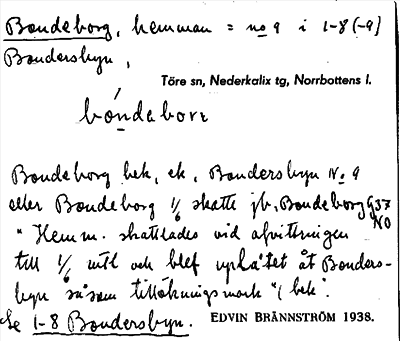 Bondeborg, hemman = no 9 i 1-8 (-9)
Bondersbyn,
Töre sn, Nederkalix tg, Norrbottens l.
bóndabore
Bondeborg bek, ek, Bondersbyn No 9
eller Bondeborg 1/6 skatte jb, Bondeborg G 37 NO
"Hemm. skattlades vid afvittringen
till 1/6 mtl och blef upplåtet åt Bonders-
byn såsom tillökningsmark" (bek.
Se 1-8 Bondersbyn. EDVIN BRÄNNSTRÖM 1938.